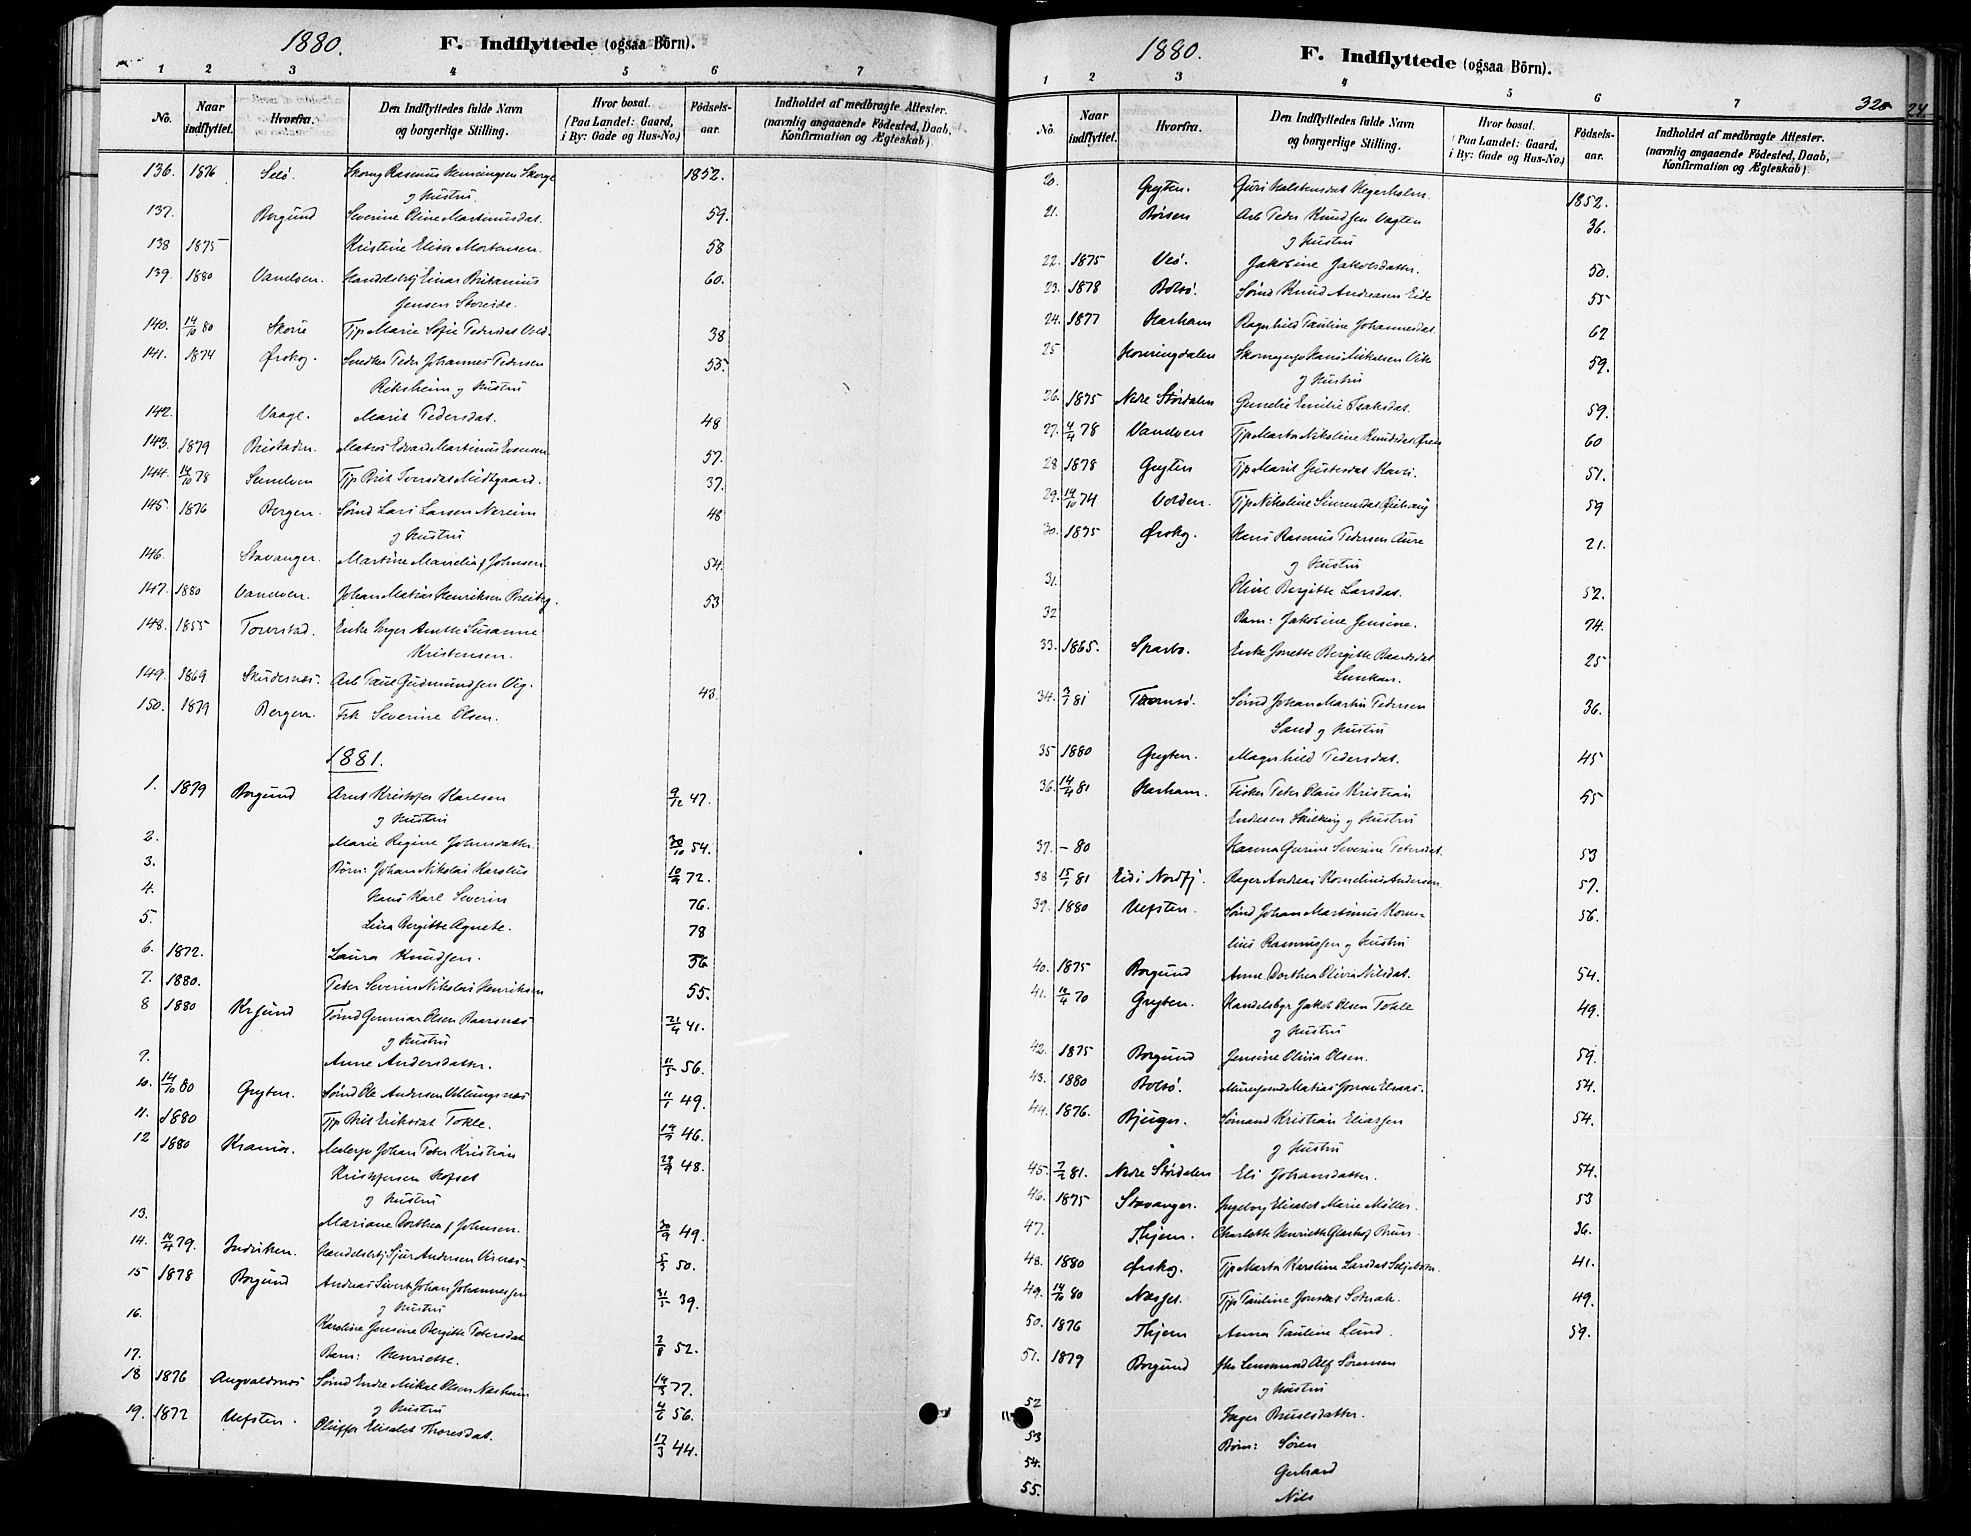 1880.
F. Indflyttede (ogsaa Börn).
1 2 3 4 5 6 7
No. Naar indflyttet. Hvorfra. Den Indflyttedes fulde Navn og borgerlige Stilling. Hvor bosat. (Paa Landet: Gaard, i By: Gade og Hus-No.) Födsels-aar. Indholdet af medbragte Attester. (navnlig angaaende Födested, Daab, Konfirmation og Ægteskab).
136. 1876 Selö. Skomg Rasmus Henningsen Skorge 1852.
og Hustru
137. Borgund Severine Oline Martinusdat. 59.
138 1875 Kristine Elisa Mortensen. 58
139. 1880 Vanelven. Handelsbtj Einar Britanius 60.
Jensen Storeide.
140. 14/10 80 Skorie Tjp Marie Sofie Pedersdat Vold. 38
141. 1874 Ørskog. Snedker Peder Johannes Pedersen 55.
Riksheim og Hustru
142. Vaage. Marit Pedersdat. 48
143. 1879 Matros Edvard Martinus Evensen 57.
144. 14/10 78 Sundven Tjp Brit Iversdat Midtgaard. 37.
145. 1876 Bergen. Sömd Lars Larsen Nereim 48
og Hustru
146. Stavanger. Martine f Johnsen. 54.
147. 1880 Vanelven. Johan Matias Henriksen 53
148. 1855 Torvestad. Enke Inger Susanne
Kristensen.
149. 1869 Skudesnæs. Arb Paul Gudmundsen Vig. 43.
150. 1879 Bergen. Frk Severine Olsen.
1881.
1. 1879 Borgund Arnt Kristofer Karlsen 9/12 47.
og Hustru
2. Marie Regine Johnsdatter. 30/10 54.
3. Börn: Johan Nikolai Karolus 10/9 72.
4. Hans Karl Severin 76.
5. Lina Bergitte Agnete. 78
6. 1872. Laura Knudsen. 56
7. 1880. Peter Severin Nikolai Henriksen 55.
8 1880 Krsund Tömd Gunnar Olsen 21/4 41.
og Hustru
9. Anne Andersdatter. 11/5 56.
10. 14/10 80 Gryten. Sömd Ole Andersen 11/1 49.
11. 1880 Tjp Brit Eriksdat Tokle. 19/7 46.
12 1880 Malersv Johan Peter Kristian 29/9 48.
Kristofersen Hofset
og Hustru
13. Mariane Dorthea f Johnsen. 30/9 49.
14. 14/4 79. Indviken. Handelsbtj Sjur Andersen 5/3 50.
15 1878 Borgund Andreas Sivert Johan Johannessen 31/5 39.
og Hustru
16. Karoline Jensine Bergitte Petersdat 2/8 52.
17. Barn: Henriette. 19/3 77.
18 1876 Augvaldsnæs Sömd Endre Mikal Olsen Næsheim 4/6 56.
og Hustru
19. 1872 Vefsten. Elisabet Thoresdat. 17/3 44.
1880.
F. Indflyttede (ogsaa Börn).
320
24
1 2 3 4 5 6 7
No. Naar indflyttet. Hvorfra. Den Indflyttedes fulde Navn og borgerlige Stilling. Hvor bosat. (Paa Landet: Gaard, i By: Gade og Hus-No.) Födsels-aar. Indholdet af medbragte Attester. (navnlig angaaende Födested, Daab, Konfirmation og Ægteskab).
20. Gryten. Guri Halstensdat Hegerholm. 1852.
21. Börsen Arb Peder Knudsen Vagten 36.
og Hustru
22. 1875 Veö. Jakobine Jakobsdatter. 50.
23. 1878 Bolsö. Sömd Knud Andreasen Eide 55
24. 1877 Harham Ragnhild Pauline Johannesdat 62
25 Horningdalen Skomagersv Hans Mikelsen Vik 59.
og Hustru
26. 1875 Nedre Stördalen Emilie Isaksdat. 59.
27. 4/4 78 Vanelven Tjp Marta Nikoline Knudsdat 60
28 1878 Gryten Tjp Marit 51.
29. 14/10 74 Volden. Tjp Nikoline Simensdat 59
30. 1875 Ørskog. Hans Rasmus Pedersen Aure 21.
og Hustru
31. Oline Bergitte Larsdat. 52.
32 Barn: Jakobine Jensine. 74.
33. 1865. Sparbo. Enke Jonette Bergitte Baardsdat 25
34. 3/7 81 Tromsö. Sömd Johan Martin Pedersen 36.
Sand og Hustru
35 1880 Gryten. Magnhild Pedersdat. 45
36. 14/4 81 Harham. Fisker Peter Olaus Kristian 55
Endresen og Hustru
37. – 80 Hanna Gurine Severine Petersdat. 53
38 15/1 81 Eid i Nordfj. Bager Andreas Kornelius Andersen 57.
39. 1880 Vefsten. Sömd Johan Martinus Korne- 56.
lius Rasmussen og Hustru
40. 1875 Borgund Anne Dorthea Olivia Nilsdat. 54.
41. 14/4 70 Gryten. Handelsbgr Jakob Olsen Tokle 49.
og Hustru
42. 1875 Borgund Jensine Olivia Olsen. 59.
43. 1880 Bolsö. Murersvend Matias Jonsen 54.
44. 1876. Bjugn. Sömand Kristian Eliassen 54.
og Hustru
45. 7/2 81. Nedre Stördalen Eli Johansdatter. 54.
46. 1875 Stavanger. Ingeborg Elisabet Marie Möller. 53
47. Thjem. Charlotte Henriette Bruun. 36.
48. 1880 Ørskog. Tjp Marta Karoline Larsdat 41.
49. 14/10 80 Næsset. Tjp Pauline Jonsdat 49.
50. 1876 Thjem Anna Pauline Lund. 59.
51. 1879 Borgund Alf Sörensen
og Hustru
52 Inger
53 Börn: Sören
54. Gerhard
55. Nils